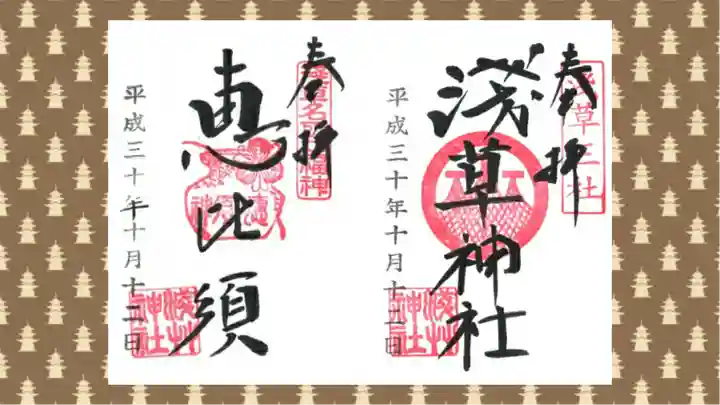 奉拝
浅草三社
浅草神社
平成三十年十月十二日
浅草神社
奉拝
恵比須
平成三十年十月十二日
浅草神社